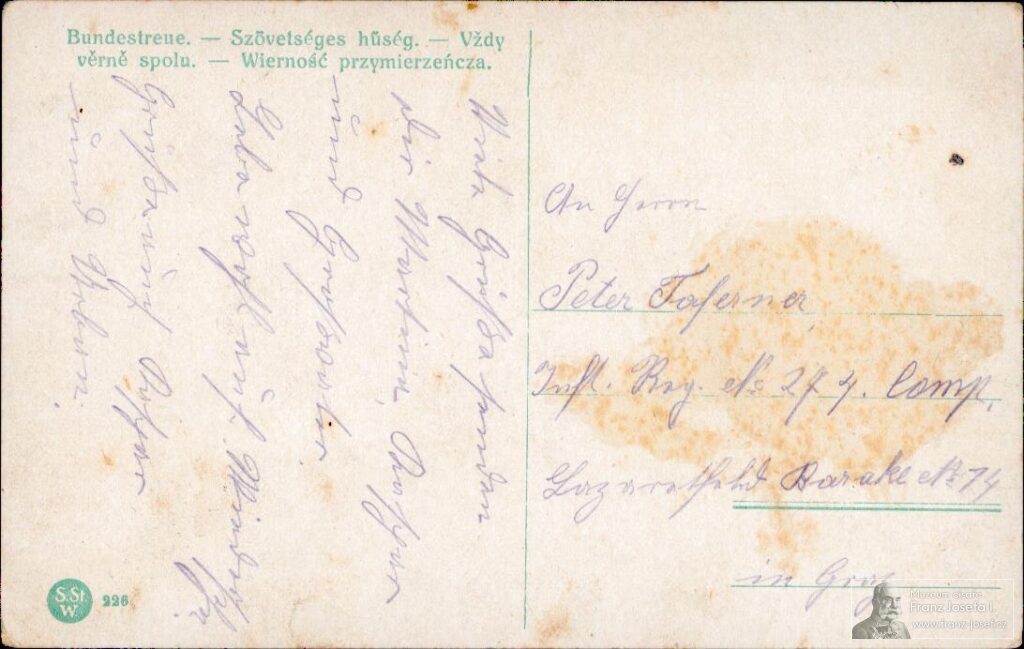 Bundestreue. — Szövetséges hűség. — Vždy
věrně spolu. — Wierność przymierzeńcza.
Viele Grüße senden
dir Martina,
und Großvater
Lebe wohl auf
Gruß auf
und
An Herrn
Peter Taferner
Inft. Reg. No 27 4. Comp.
Lazarethfeld Barake No 74
in Graz
S.St.
W.
226
Muzeum císaře
Franz Josefa I.
www.franz-josef.cz